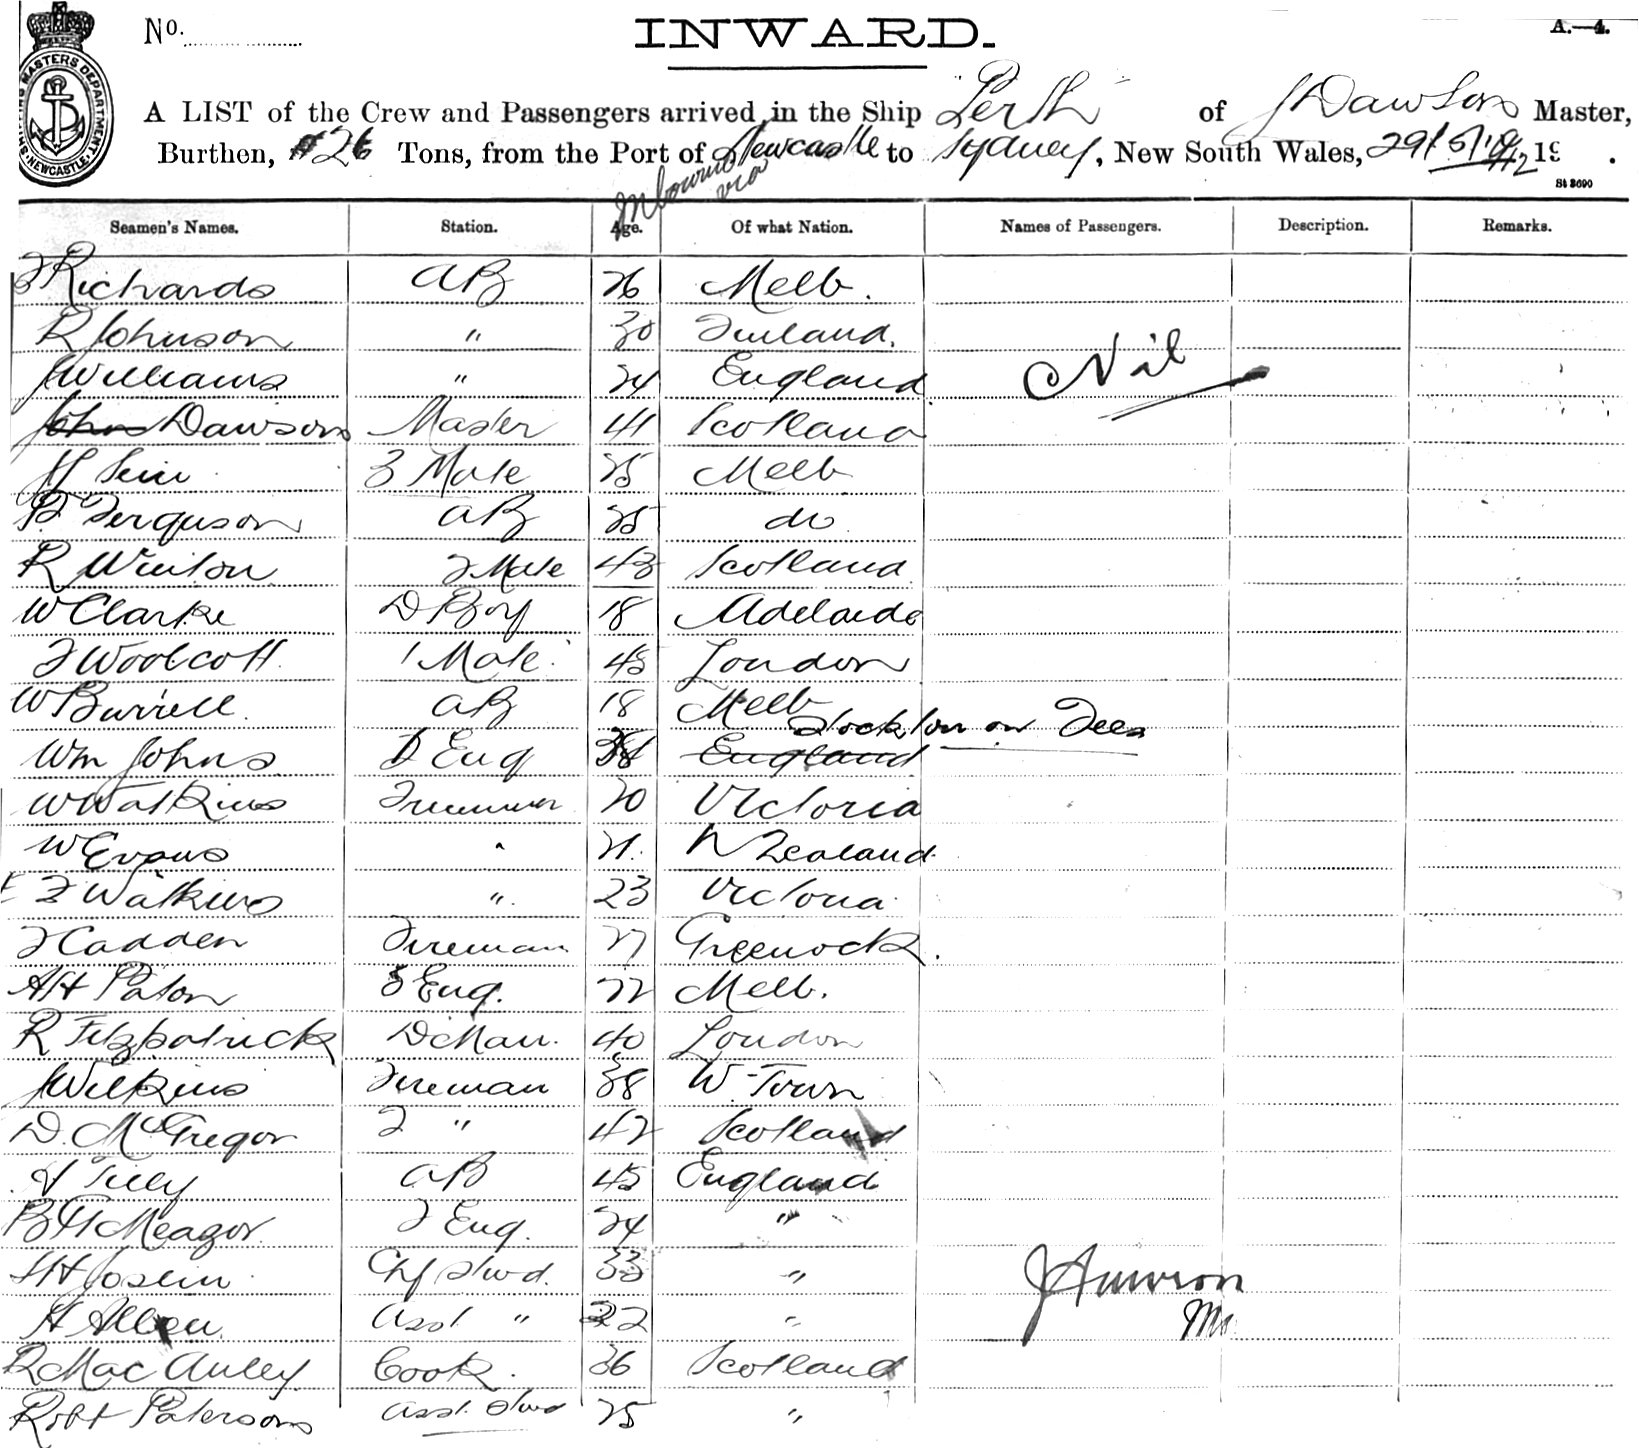 No.
INWARD.
A.—4.
SHIPPING MASTERS DEPARTMENT
NEWCASTLE
A LIST of the Crew and Passengers arrived in the Ship "Perth" of J Dawson Master,
Burthen, 26 Tons, from the Port of Newcastle to Sydney, New South Wales, 29/5/ 19 .
via
St 3690
Seamen's Names. Station. Age. Of what Nation. Names of Passengers. Description. Remarks.
Richards AB 26 Melb.
R Johnson " 30 Finland.
J Williams " 24 England
Nil
John Dawson Master 41 Scotland
3 Mate 25 Melb
Ferguson AB 25 do
R Winton 2 Mate 43 Scotland
W Clarke D Boy 18 Adelaide
Woolcott 1 Mate 45 London
W Burrell AB 18 Melb
Stockton on Tees
Wm Johns Eng England
W Watkins 20 Victoria
W Evans " 21. N Zealand
Watkins " 23 Victoria
Cadden Fireman 27 Greenock.
AH Paton 3 Eng. 22 Melb.
R Fitzpatrick DcMan. 40 London
J Wilkins Fireman 38 W. Town
D. McGregor " 42 Scotland
Tilly AB 45 England
BH Meagor 2 Eng. 24 "
Joslin Chf Stwd. 33 "
H Allen Asst. " 22 "
R MacAuley Cook. 36 Scotland
Robt Paterson Asst. Stwd 25 "